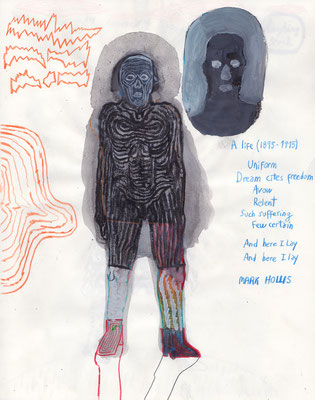 A life (1895-1915)
Uniform
Dream cites freedom
Avow
Relent
Such suffering
Few certain
And here I lay
And here I lay
MARK HOLLIS